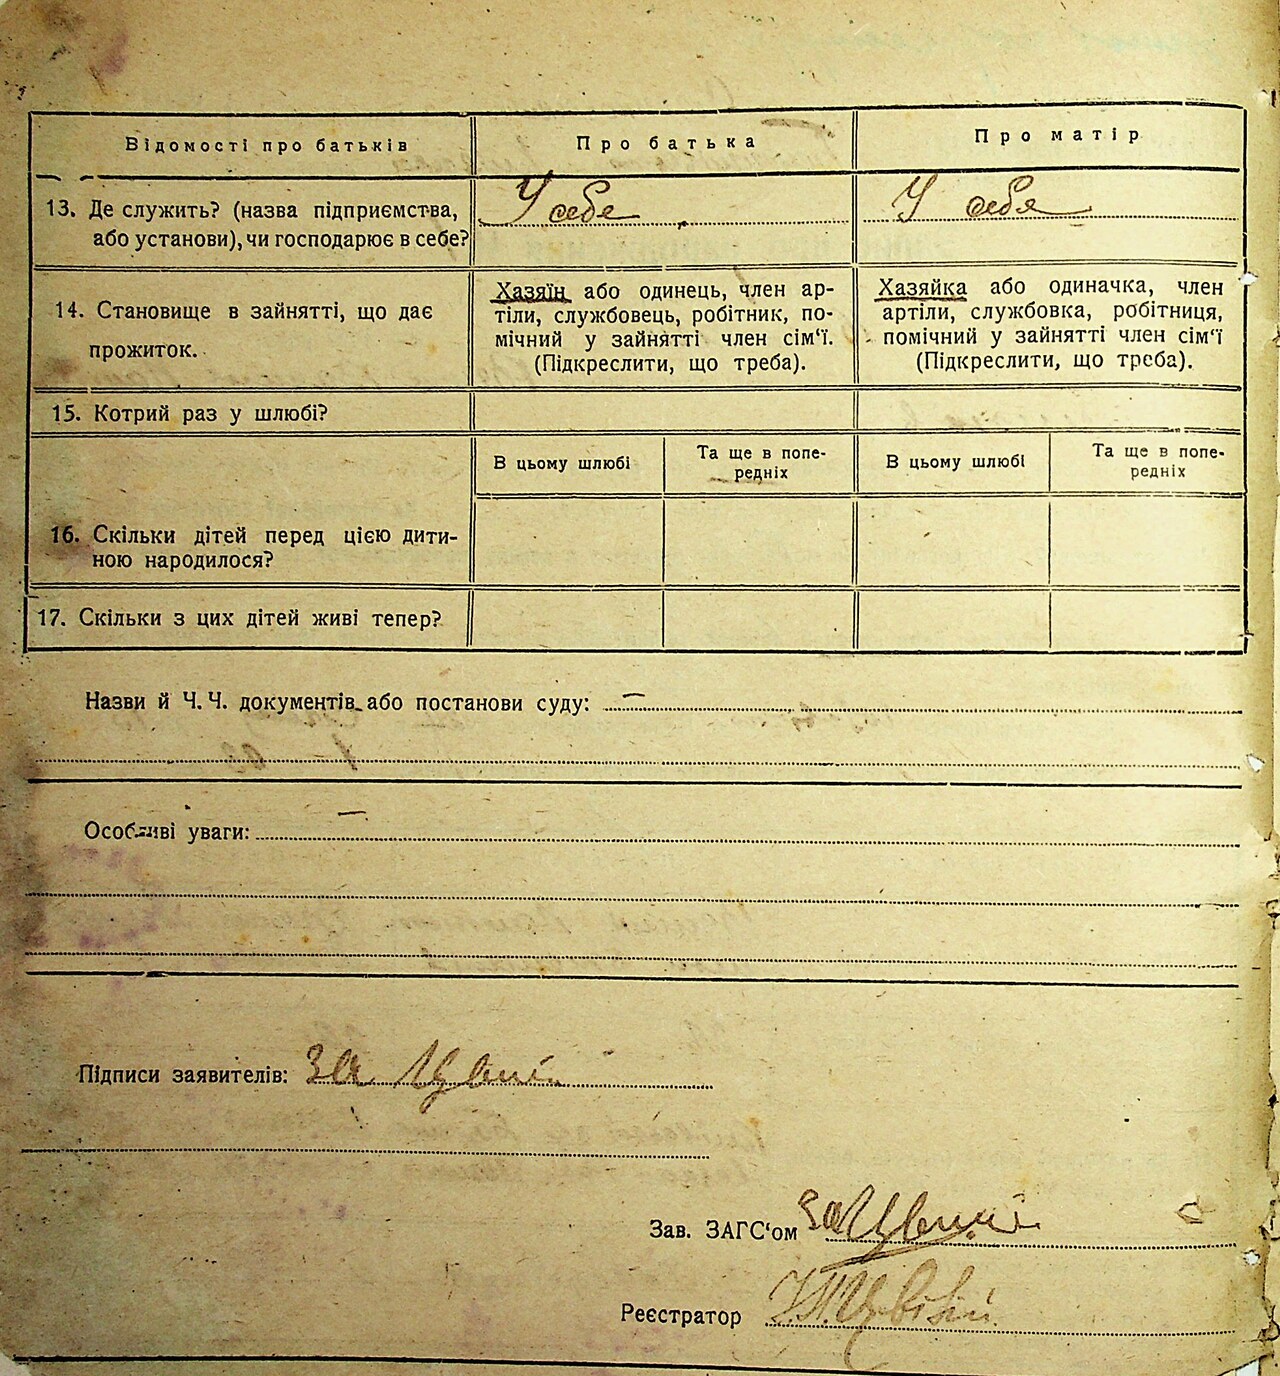 Відомості про батьків
Про батька
Про матір
13. Де служить? (назва підприємства,
або установи), чи господарює в себе?
У себе
У себя
14. Становище в зайнятті, що дає
прожиток.
Хазяїн або одинець, член ар-
тіли, службовець, робітник, по-
мічний у зайнятті член сім‘ї.
(Підкреслити, що треба).
Хазяйка або одиначка, член
артіли, службовка, робітниця,
помічний у зайнятті член сім‘ї
(Підкреслити, що треба).
15. Котрий раз у шлюбі?
В цьому шлюбі
Та ще в попе-
редніх
В цьому шлюбі
Та ще в попе-
редніх
16. Скільки дітей перед цією дити-
ною народилося?
17. Скільки з цих дітей живі тепер?
Назви й Ч. Ч. документів або постанови суду: —
Особливі уваги: —
Підписи заявителів: За
Зав. ЗАГС‘ом За
Реєстратор